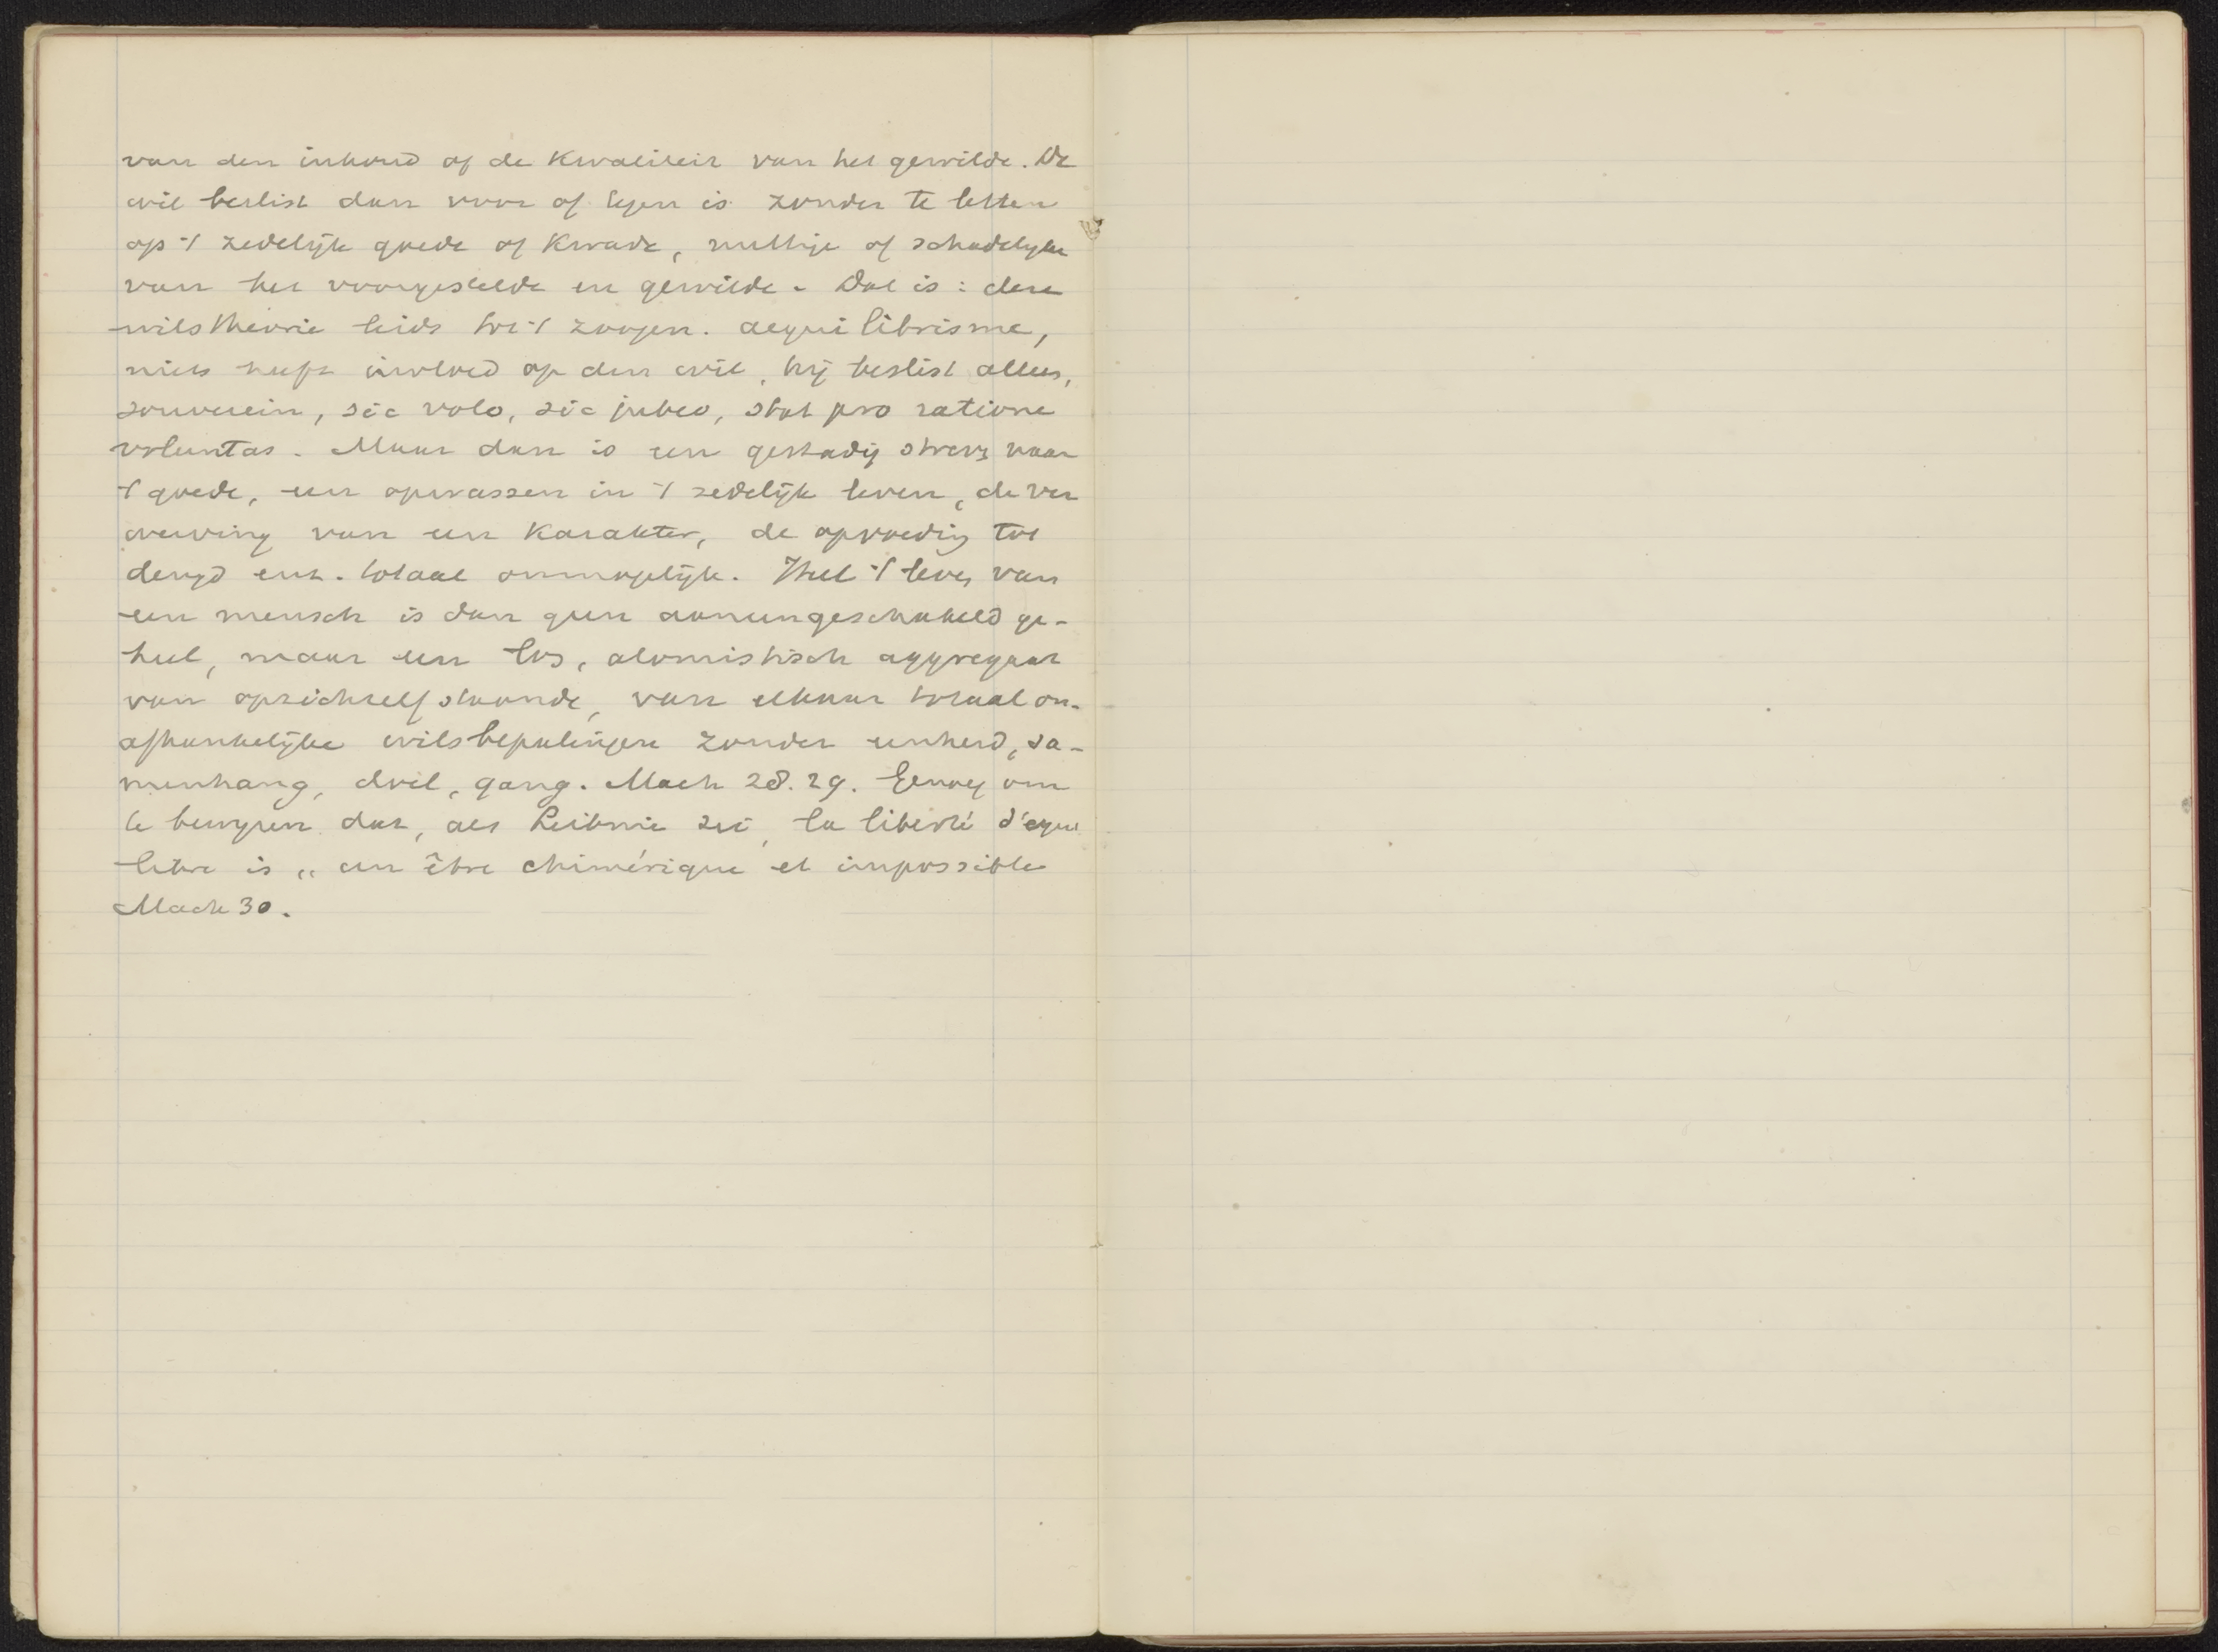 van den inhoud of de kwaliteit van het gewilde. De
wil beslist dan voor of tegen is zonder te letten
op 't zedelijk goede of kwade, nuttige of schadelyke
van het voorgestelde en gewilde. Dat is: deze
wilstheorie leidt tot 't zoogen. aequilibrisme,
niets heeft invloed op den wil, hij beslist alles,
souverein, sic volo, sic jubeo, stat pro ratione
voluntas. Maar dan is een gestadig streven naar
't goede, een opwassen in 't zedelijk leven, de ver
werving van een karakter, de opvoeding tot
deugd enz. totaal onmogelijk. Heel 't leven van
een mensch is dan geen aaneengeschakeld ge-
heel, maar een los, atomistisch aggregaat
van opzichzelfstaande, van elkaar totaal on-
afhankelijke wilsbepalingen zonder eenheid, sa-
menhang, doel, gang. Mach 28. 29. Genoeg om
te bewyzen dat, als Leibniz zei, la liberté d'equi
libre is „ un être chimérique et impossible
Mach 30.